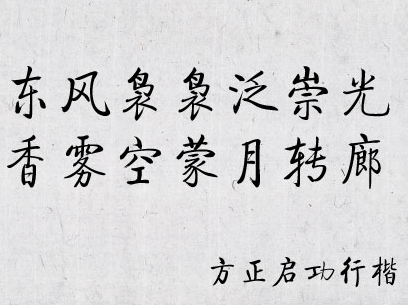 东风袅袅泛崇光
香雾空蒙月转廊
方正启功行楷